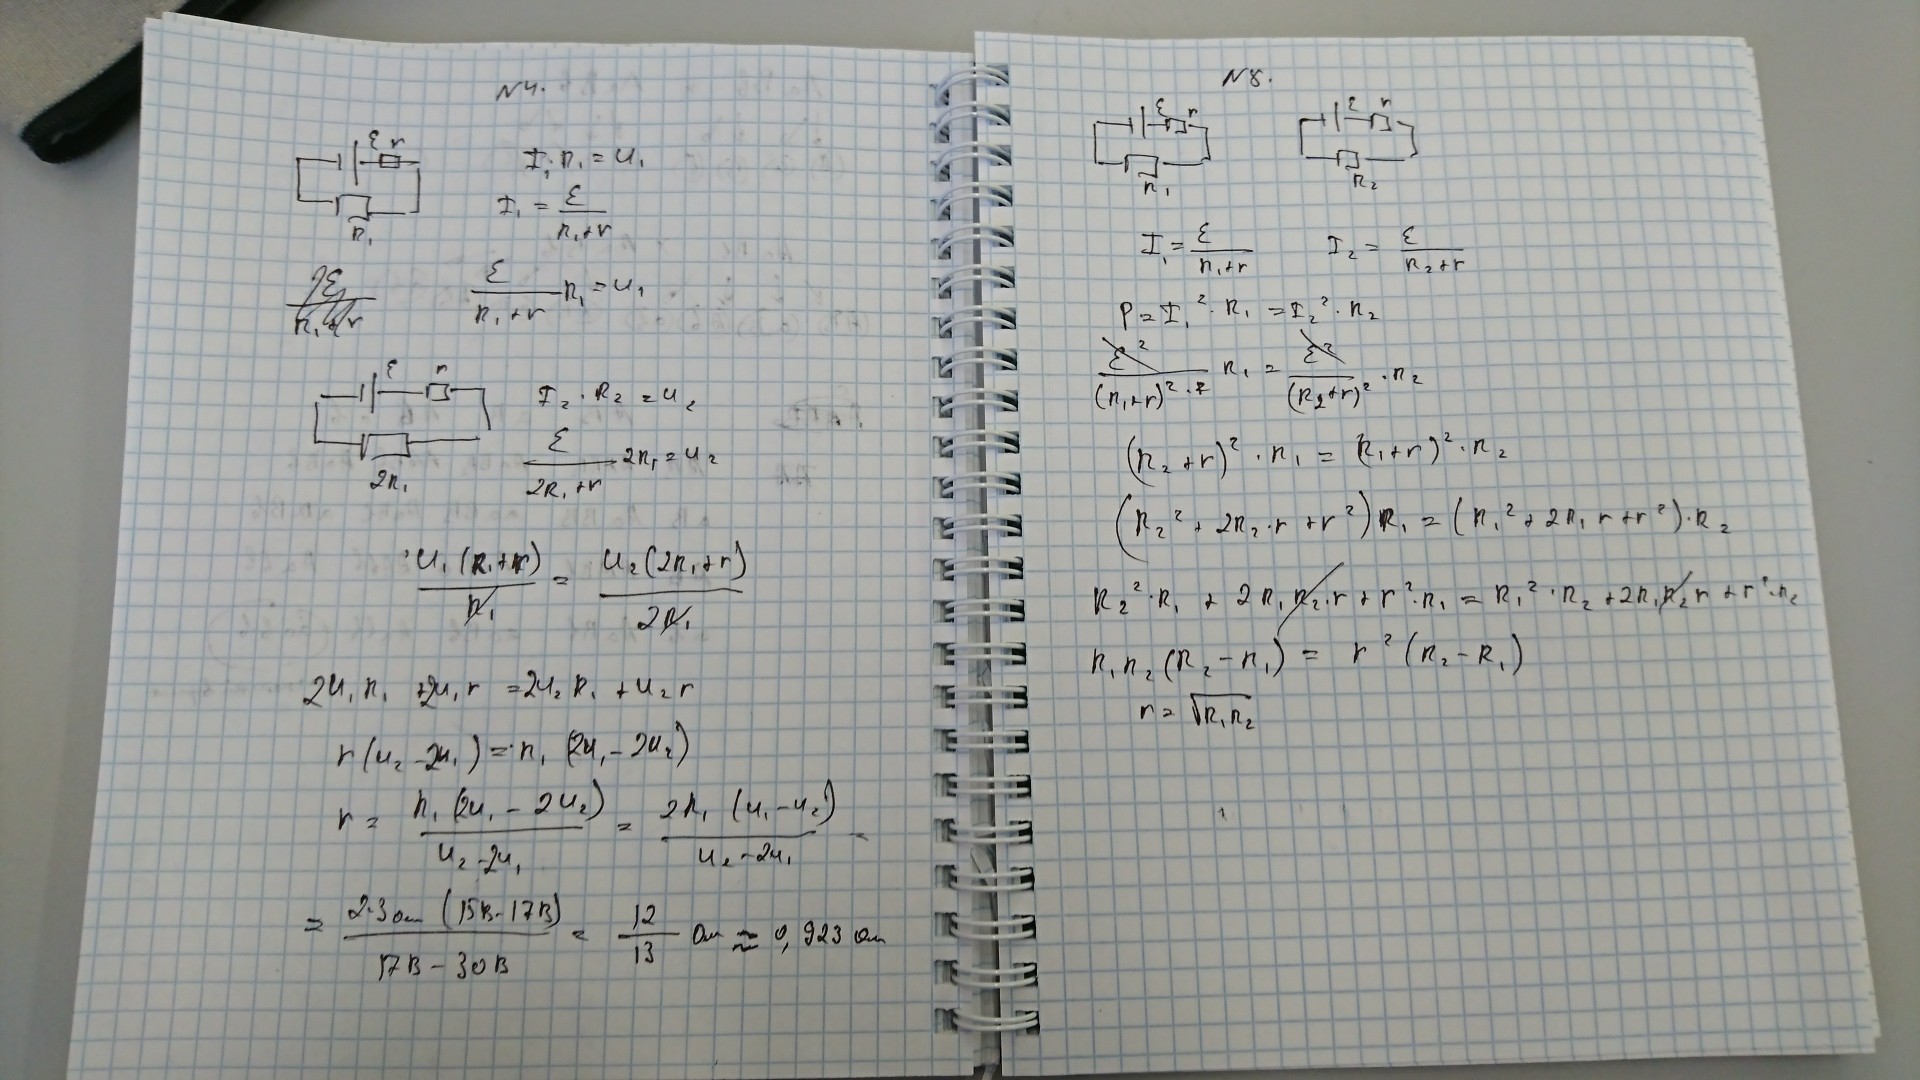 N4.
ε r
R₁
I₁·R₁ = U₁
I₁ = ε/(R₁+r)
ε/(R₁+r) R₁ = U₁
ε r
2R₁
I₂ · R₂ = U₂
ε/(2R₁+r) 2R₁ = U₂
U₁(R₁+r)/R₁ = U₂(2R₁+r)/2R₁
2U₁R₁ + 2U₁r = 2U₂R₁ + U₂r
r(U₂ - 2U₁) = R₁(2U₁ - 2U₂)
r = R₁(2U₁ - 2U₂)/(U₂ - 2U₁) = 2R₁(U₁ - U₂)/(U₂ - 2U₁) =
= 2·3 Ом (15В - 17В)/(17В - 30В) = 12/13 Ом ≈ 0,923 Ом
N8.
ε r
R₁
ε r
R₂
I₁ = ε/(R₁+r) I₂ = ε/(R₂+r)
P = I₁² · R₁ = I₂² · R₂
ε²/(R₁+r)² · R₁ = ε²/(R₂+r)² · R₂
(R₂+r)² · R₁ = (R₁+r)² · R₂
(R₂² + 2R₂·r + r²)R₁ = (R₁² + 2R₁r + r²)·R₂
R₂²·R₁ + 2R₁R₂·r + r²·R₁ = R₁²·R₂ + 2R₁R₂r + r²·R₂
R₁R₂(R₂ - R₁) = r²(R₂ - R₁)
r = √R₁R₂